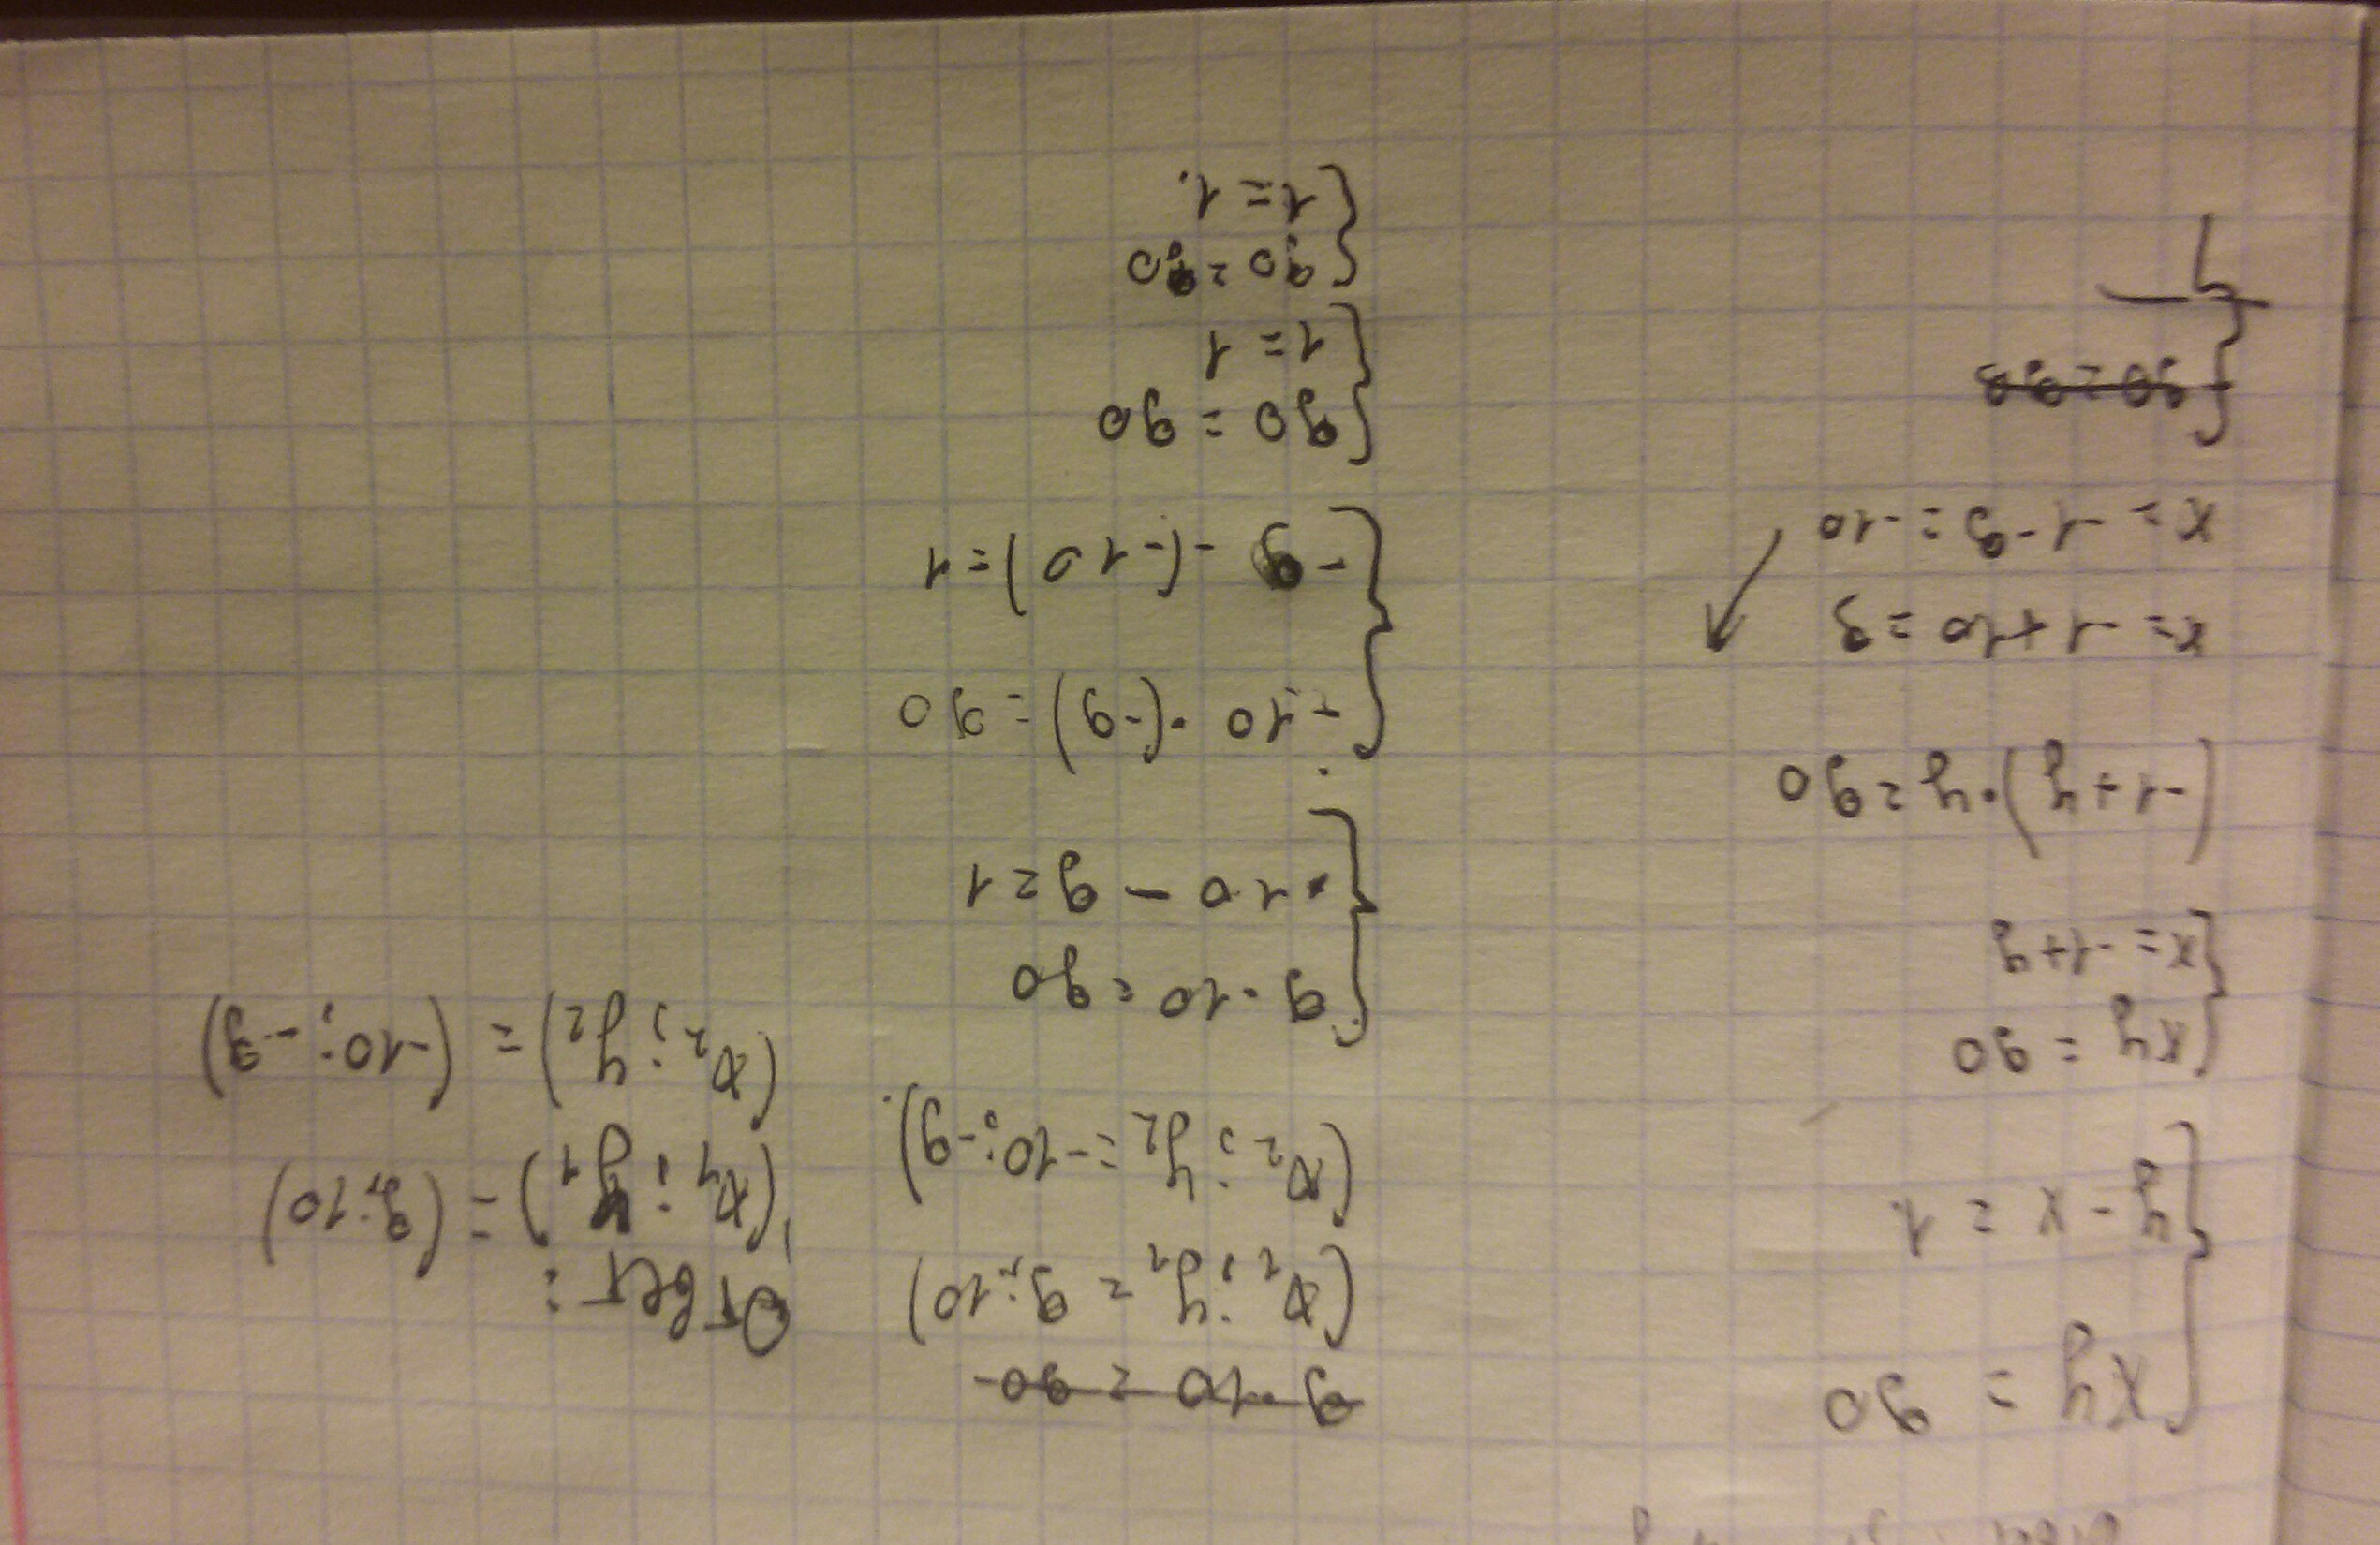 xy = 90
y - x = 1
xy = 90
x = -1+y
(-1+y)·y=90
x = -1+10=9
x = -1-9=-10
90=90
9·10=90
(x₁; y₁ = 9; 10)
(x₂; y₂ = -10; -9)
9·10=90
10-9=1
-10·(-9)=90
-9-(-10)=1
90=90
1=1
90=90
1=1.
Ответ:
(x₁; y₁) = (9; 10)
(x₂; y₂) = (-10; -9)